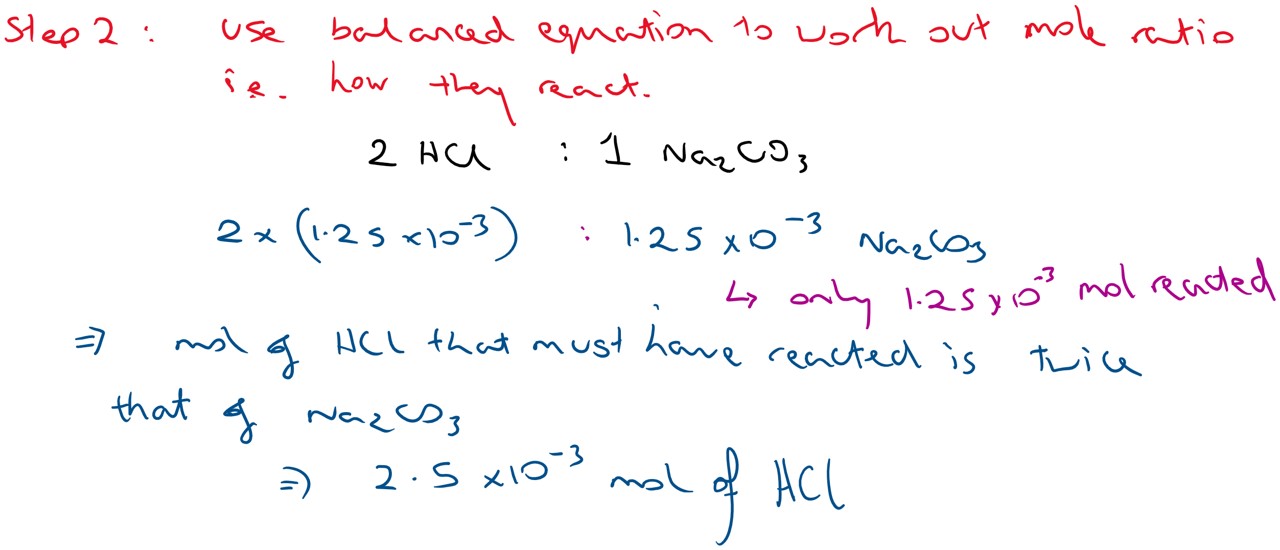 Step 2 : use balanced equation to work out mole ratio
i.e. how they react.
2 HCl : 1 Na₂CO₃
2 × (1.25 × 10⁻³) : 1.25 × 10⁻³ Na₂CO₃
↳ only 1.25 × 10⁻³ mol reacted
⇒ mol of HCl that must have reacted is twice
that of Na₂CO₃
⇒ 2.5 × 10⁻³ mol of HCl